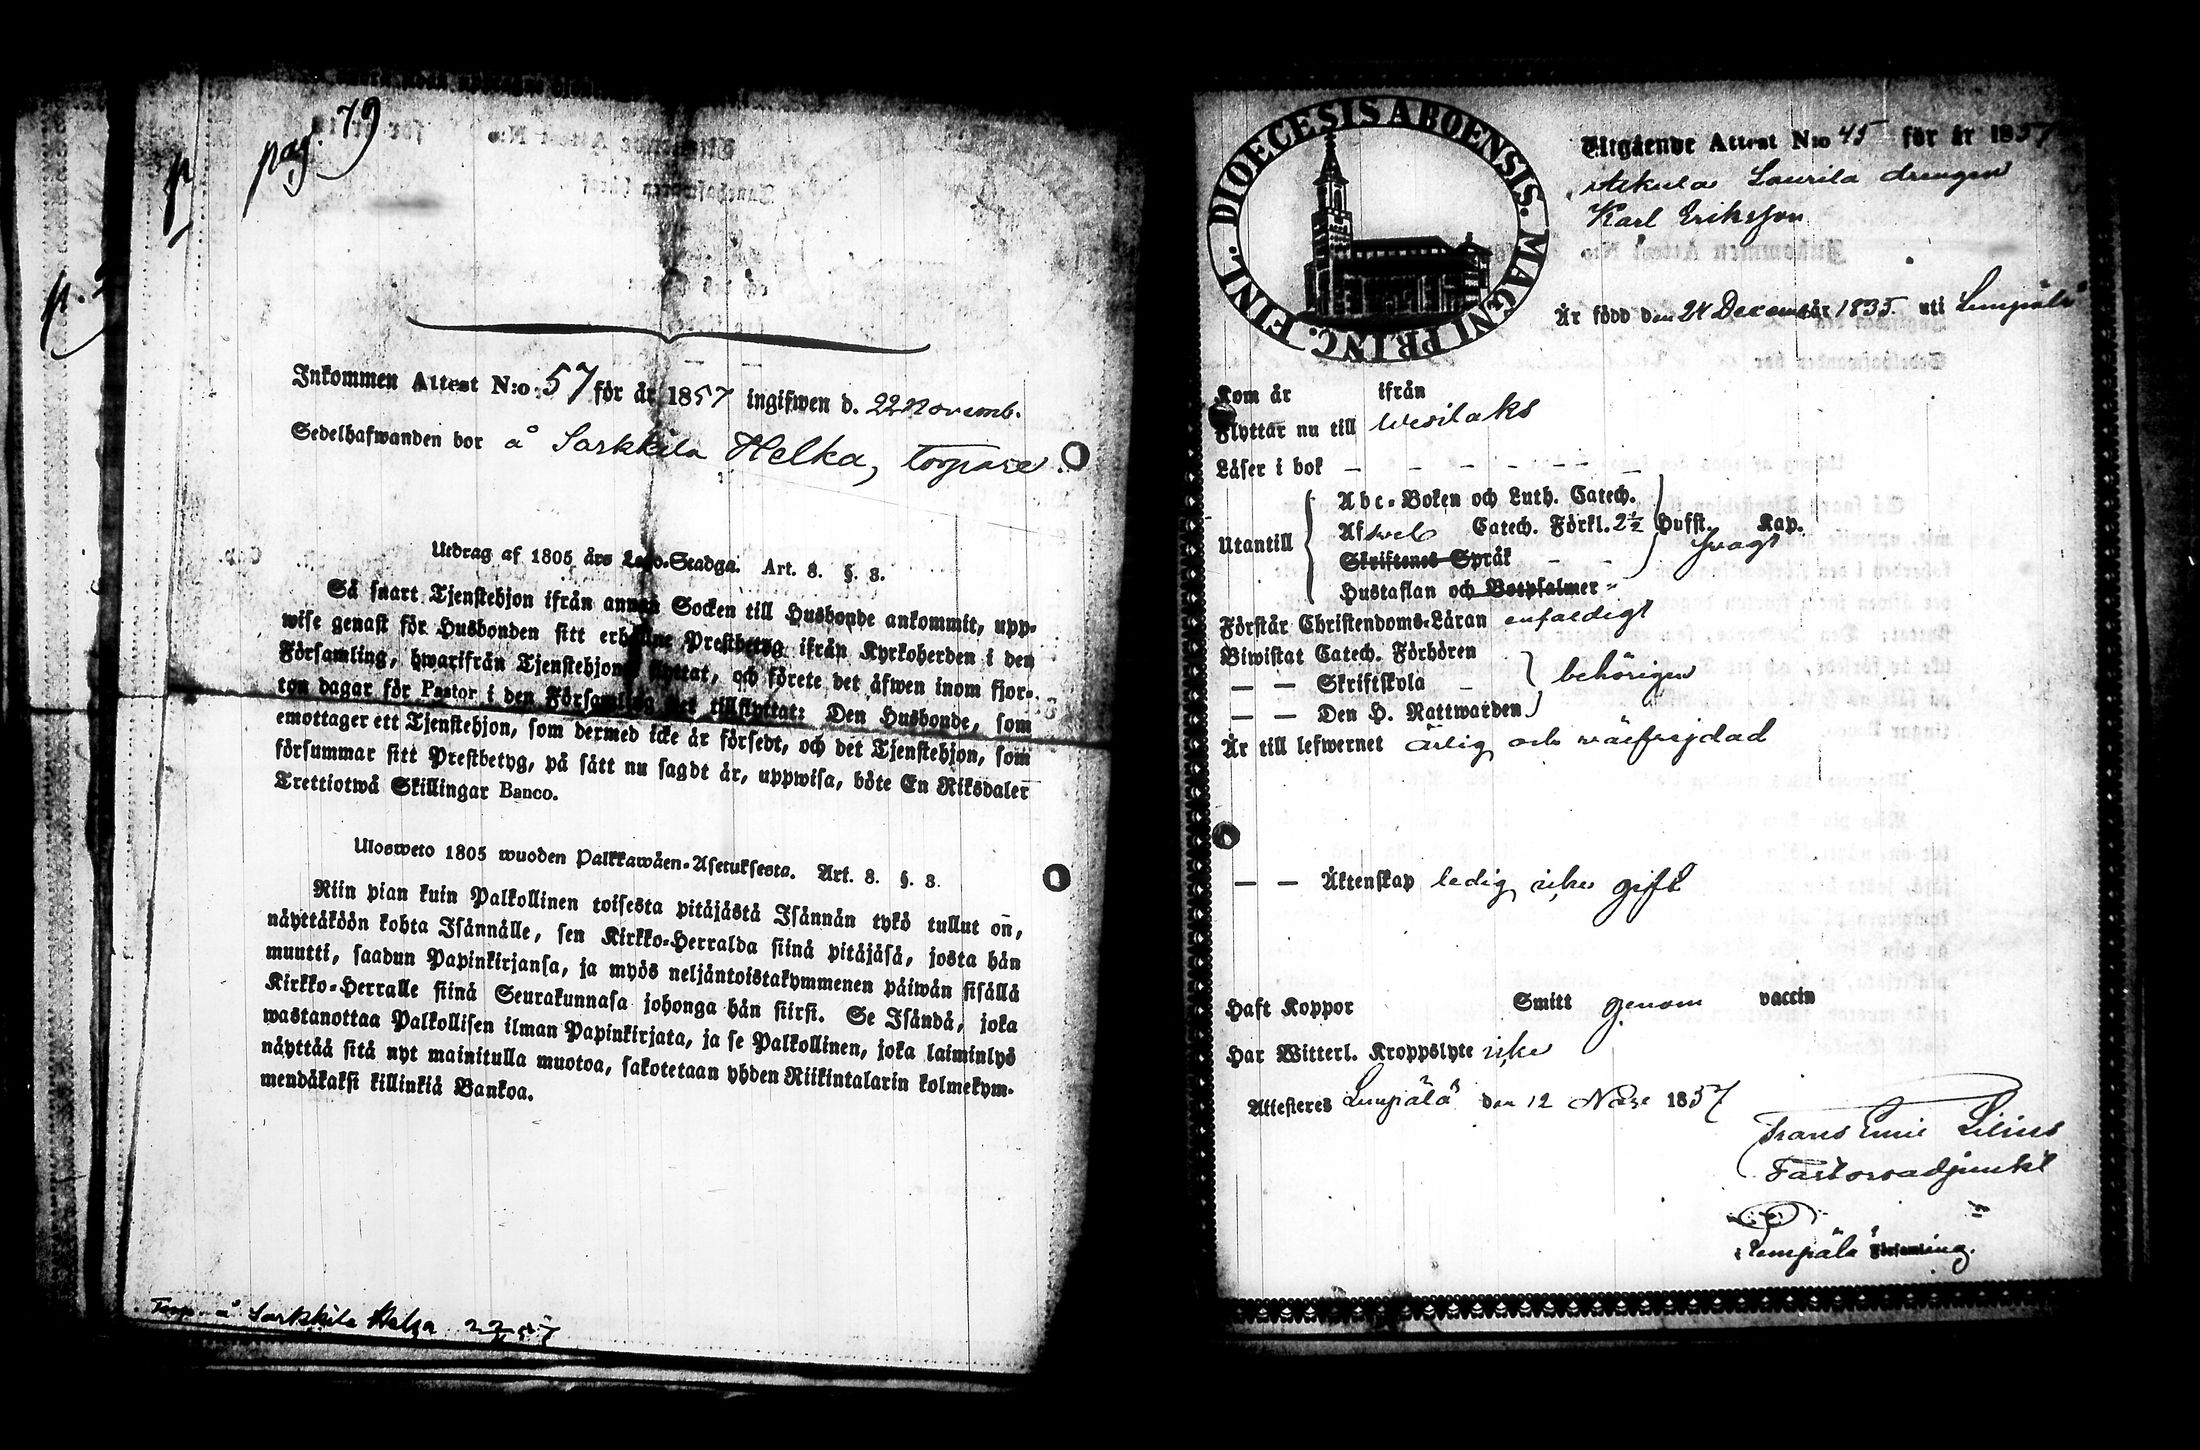 pag. 79
Inkommen Attest N:o 57 för år 1857 ingifwen d. 22 Novemb.
Sedelhafwanden bor å Sarkkila Helka, torpare.
Utdrag af 1805 års Lego-Stadga. Art. 8. §. 3.
Så snart Tjenstehjon ifrån annan Socken till Husbonde ankommit, upp-
wise genast för Husbonden sitt erhållne Prestbetyg ifrån Kyrkoherden i den
Församling, hwarifrån Tjenstehjonet flyttat, och förete det äfwen inom fjor-
ton dagar för Pastor i den Församling det tillflyttat: Den Husbonde, som
emottager ett Tjenstehjon, som dermed icke är försedt, och det Tjenstehjon, som
försummar sitt Prestbetyg, på sätt nu sagdt är, uppwisa, böte En Riksdaler
Trettiotwå Skillingar Banco.
Ulosweto 1805 wuoden Palkkawäen-Asetuksesta. Art. 8. §. 3.
Niin pian kuin Palkollinen toisesta pitäjästä Isännän tykö tullut on,
näyttäköön kohta Isännälle, sen Kirkko-Herralda siinä pitäjäsä, josta hän
muutti, saadun Papinkirjansa, ja myös neljäntoistakymmenen päiwän sisällä
Kirkko-Herralle siinä Seurakunnasa johonga hän siirsi. Se Isändä, joka
wastanottaa Palkollisen ilman Papinkirjata, ja se Palkollinen, joka laiminlyö
näyttää sitä nyt mainitulla muotoa, sakotetaan yhden Riikintalarin kolmekym-
mendäkaksi killinkiä Bankoa.
å Sarkkila Helka 22/11 57
FINL. DIOECESIS ABOENSIS. MAGNI PRINC.
Utgående Attest N:o 45 för år 1857
Laurila drengen
Karl Eriksson
Är född den 24 December 1835 uti Lempälä
Kom år ifrån
Flyttar nu till Wesilaks
Läser i bok — — — — — — —
Utantill
Abc-Boken och Luth. Catech.
Af Catech. Förkl. 2½ Hufst. Kap.
Skriftenes Språk — — svagt
Hustaflan och Botpsalmer
Förstår Christendoms-Läran enfaldigt
Biwistat Catech. Förhören
— — Skriftskola — behörigen
— — Den H. Nattwarden
Är till lefwernet ärlig och wälfrejdad
— — Äktenskap ledig, icke gift
Haft Koppor Smitt genom vaccin
Har Witterl. Kroppslyte icke
Attesteres Lempälä den 12 Nov. 1857
Frans Emil Lilius
Pastorsadjunkt
i Lempälä Församling.